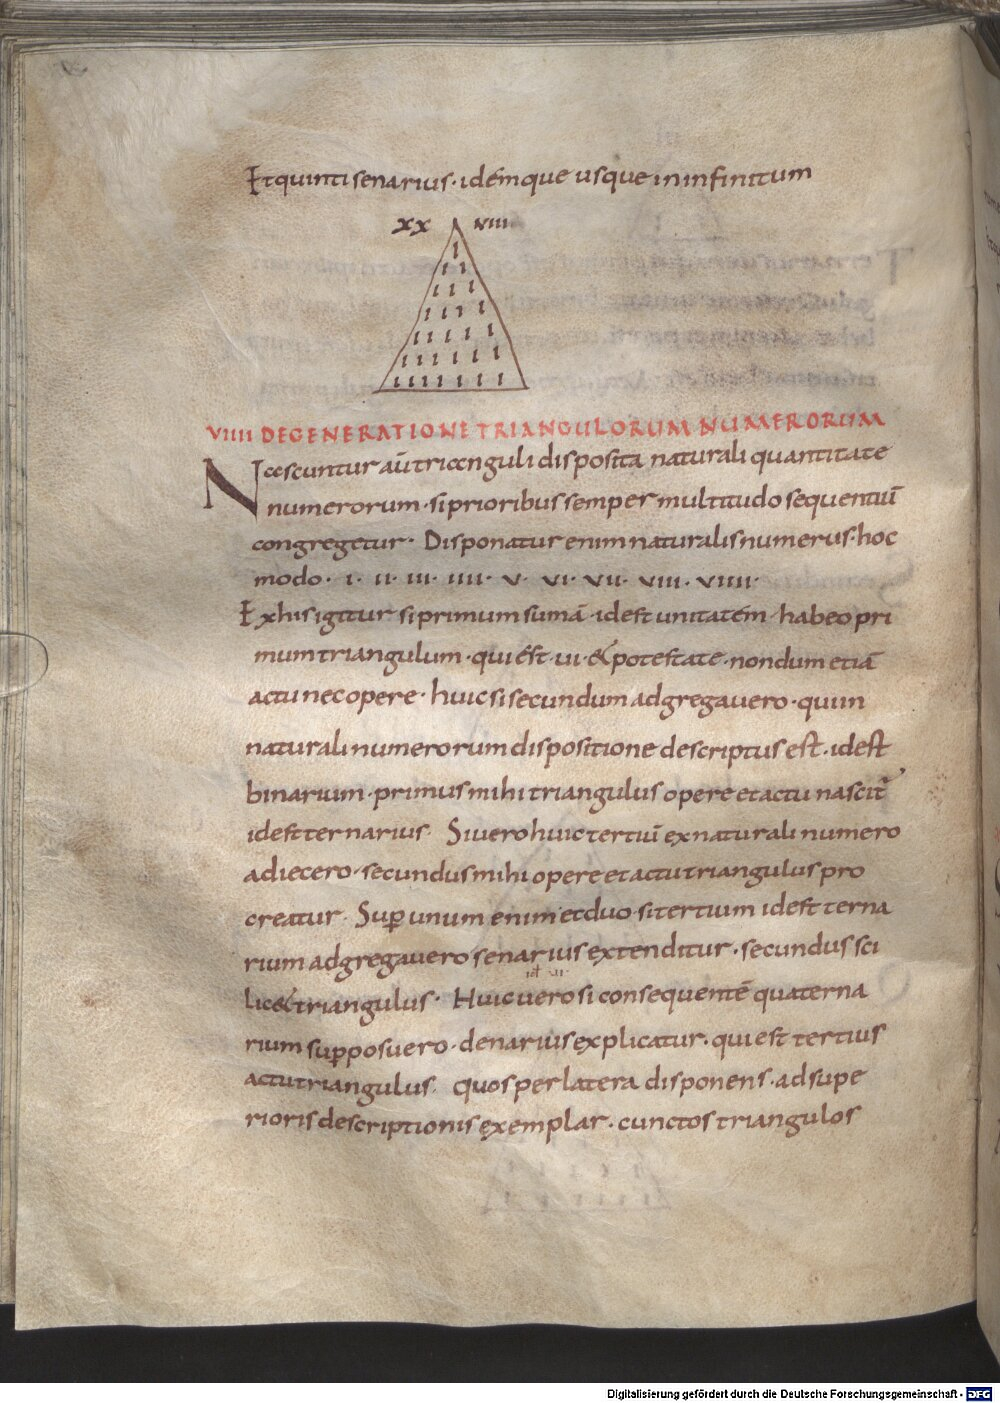 Et quinti senarius · idemque usque in infinitum
xx viii
ı
ı ı
ı ı ı
ı ı ı ı
ı ı ı ı ı
ı ı ı ı ı ı
ı ı ı ı ı ı ı
VIIII DE GENERATIONE TRIANGULORUM NUMERORUM
Nascuntur aūt trianguli disposita naturali quantitate
numerorum · si prioribus semper multitudo sequentiū
congregetur · Disponatur enim naturalis numerus · hoc
modo · ı · ıı · ııı · ıııı · v · vı · vıı · vııı · vıııı ·
Ex his igitur si primum sumā · id est unitatem · habeo pri
mum triangulum · qui est · ui · & potestate · nondum etiā
actu nec opere · huic si secundum adgregauero · qui in
naturali numerorum dispositione descriptus est · id est
binarium · primus mihi triangulus opere et actu nascit̄
id est ternarius · Si uero huic tertiū ex naturali numero
adiecero · secundus mihi opere et actu triangulus pro
creatur · Sup unum enim et duo · si tertium id est terna
rium adgregauero senarius extenditur · secundus sci
lic& triangulus · Huic uero si consequentē quaterna
rium supposuero · denarius explicatur · qui est tertius
actu triangulus · quos per latera disponens · ad supe
rioris descriptionis exemplar · cunctos triangulos
Digitalisierung gefördert durch die Deutsche Forschungsgemeinschaft - DFG